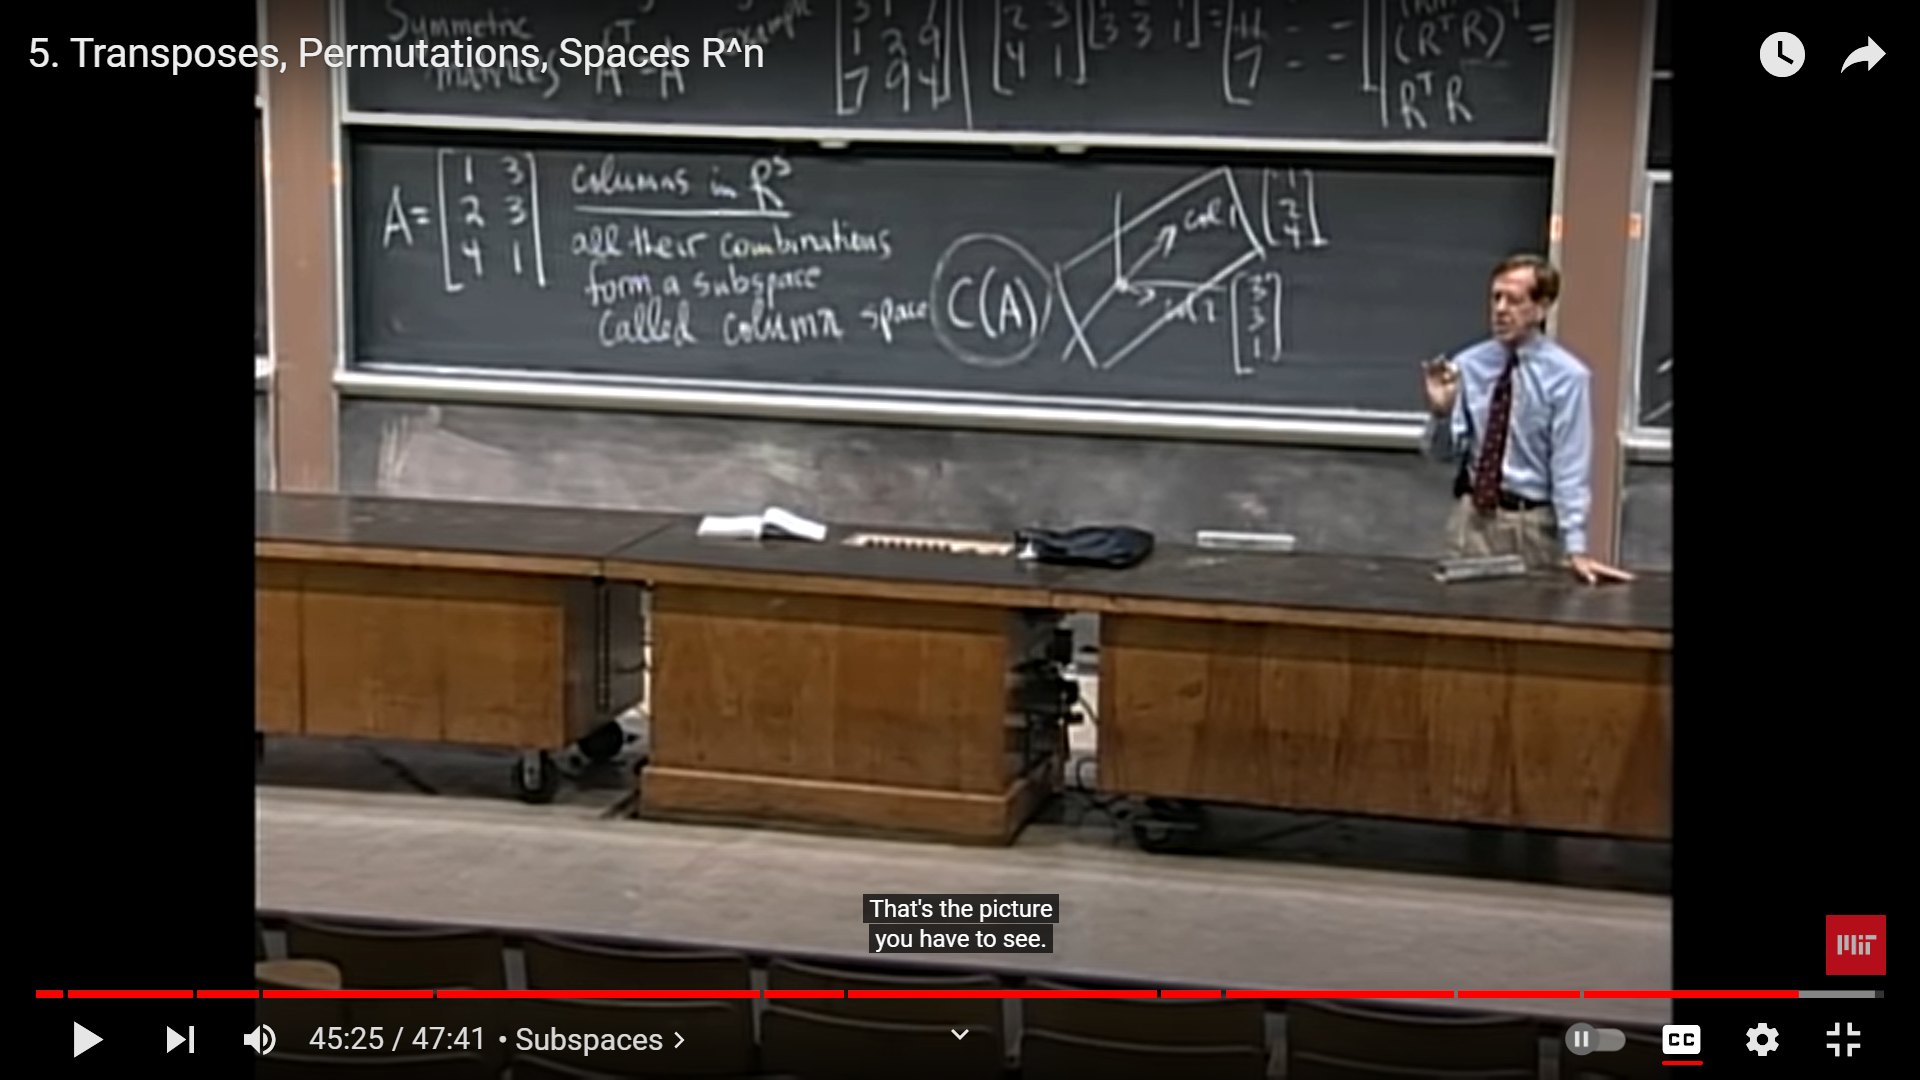 5. Transposes, Permutations, Spaces R^n
Symmetric
matrices Aᵀ = A
example
3 1 7
1 2 9
7 9 4
2 3
4 1
3 3 1
11 - -
7 - -
(RᵀR)ᵀ =
RᵀR
A= [1 3
2 3
4 1]
columns in R³
all their combinations
form a subspace
called column space C(A)
col 1 [1
2
4]
col 2 [3
3
1]
That's the picture
you have to see.
MIT
45:25 / 47:41 • Subspaces >
CC